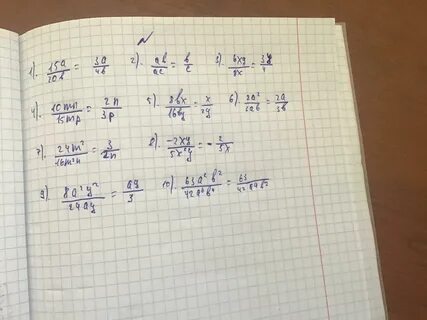 1). 15a/20b = 3a/4b 2) ab/ac = b/c 3). 6xy/8x = 3y/4
4). 10mn/15mp = 2n/3p 5). 8bx/16by = x/2y 6). 2a²/3ab = 2a/3b
7). 24m²/16m²n = 3/2n 8). -2xy/5x²y = -2/5x
9). 8a²y²/24ay = ay/3 10). 63a²b²/42a⁶b⁴ = 63